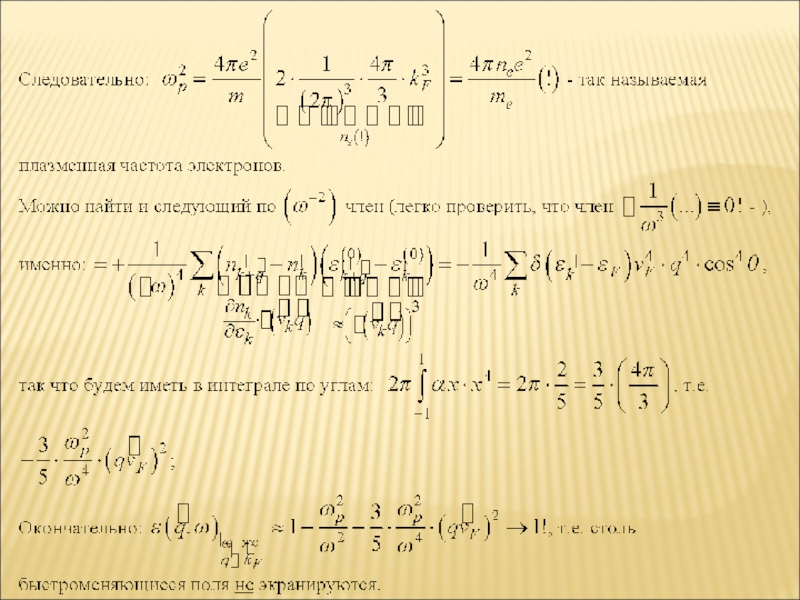 Следовательно: ω_p^2 = 4πe^2/m (2 · 1/(2π)^3 · 4π/3 · k_F^3) = 4πn_e e^2/m_e (!) - так называемая
n_e(!)
плазменная частота электронов.
Можно найти и следующий по (ω^-2) член (легко проверить, что член □ 1/ω^3 (...) ≡ 0! - ),
именно: = + 1/(□ω)^4 ∑_k (n_k+q - n_k)(ε_k+q^(0) - ε_k^(0)) = - 1/ω^4 ∑_k δ(ε_k - ε_F) v_F^4 · q^4 · cos^4 θ ,
∂n_k/∂ε_k · (v_k q) ≈ [(v_k q)]^3
так что будем иметь в интеграле по углам: 2π ∫_-1^1 αx · x^4 = 2π · 2/5 = 3/5 · (4π/3) , т.е.
- 3/5 · ω_p^2/ω^4 · (qv_F)^2 ;
Окончательно: ε(q, ω) ≈ 1 - ω_p^2/ω^2 - 3/5 · ω_p^2/ω^4 · (qv_F)^2 → 1!, т.е. столь
быстроменяющиеся поля не экранируются.